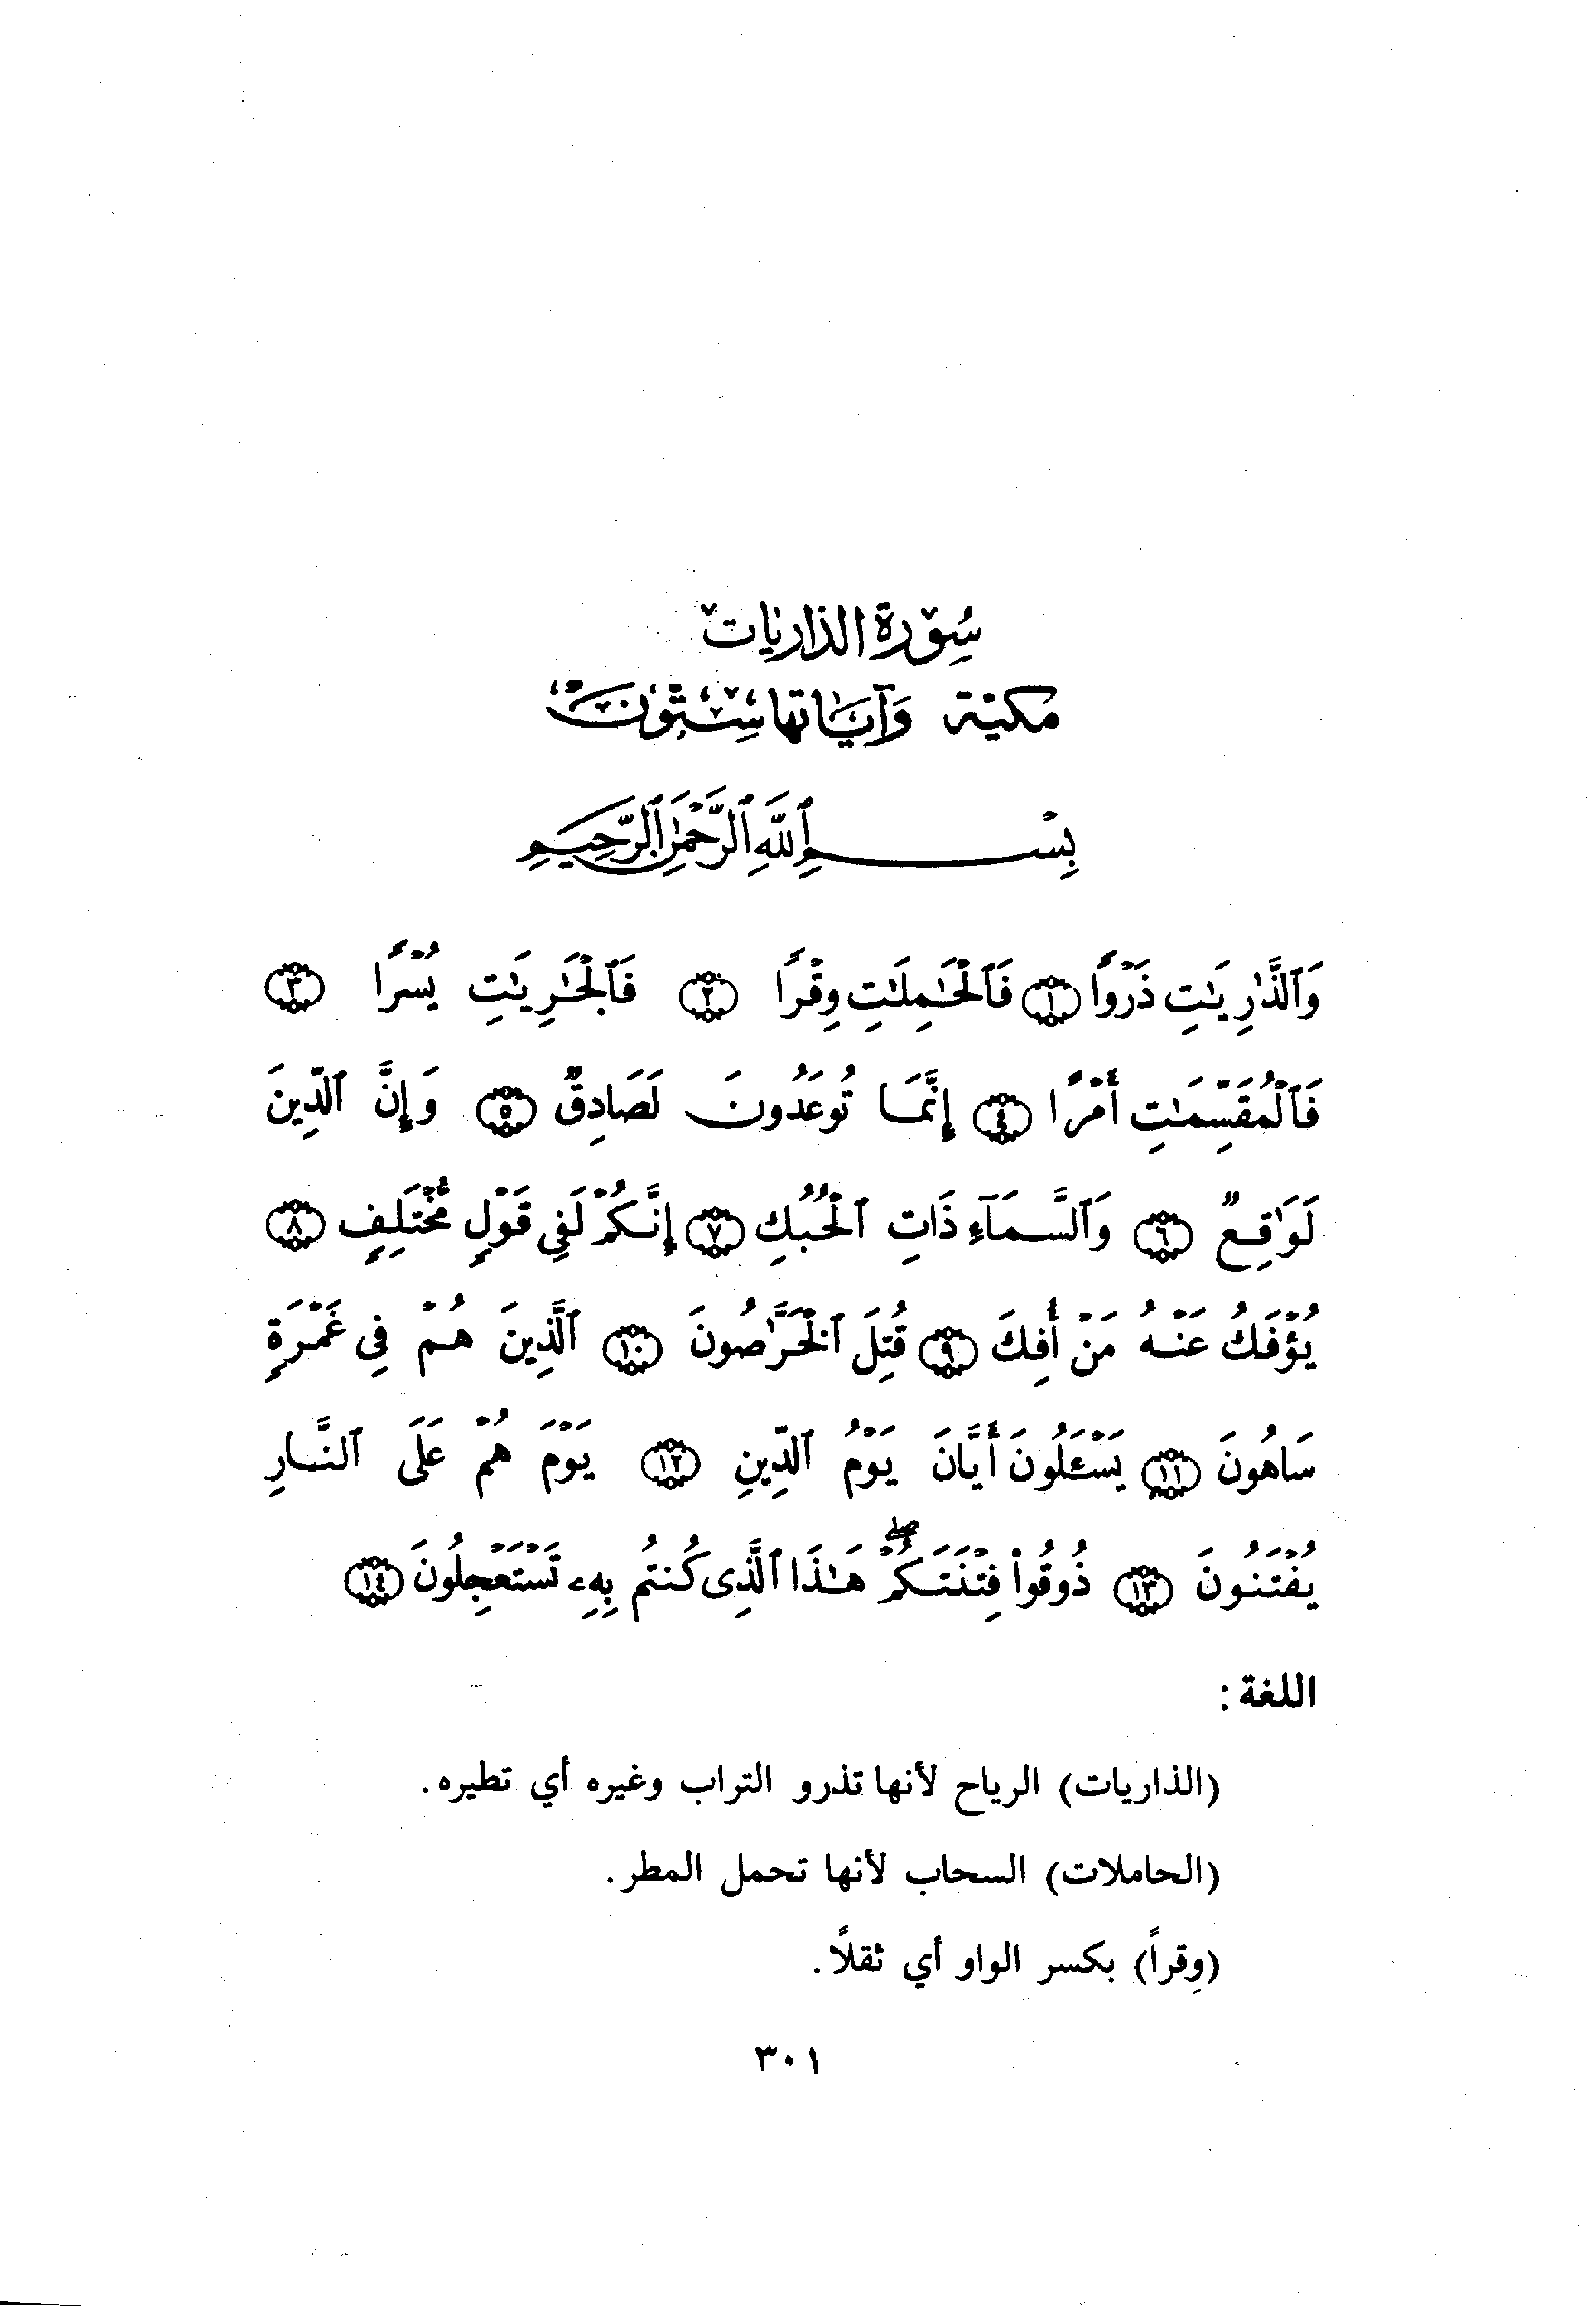 سُورة الذاريات
مكيّة وَآيَاتها سِتّون
بِسْمِ ٱللَّهِ ٱلرَّحْمَٰنِ ٱلرَّحِيمِ
وَٱلذَّٰرِيَٰتِ ذَرْوًا ﴿١﴾ فَٱلْحَٰمِلَٰتِ وِقْرًا ﴿٢﴾ فَٱلْجَٰرِيَٰتِ يُسْرًا ﴿٣﴾
فَٱلْمُقَسِّمَٰتِ أَمْرًا ﴿٤﴾ إِنَّمَا تُوعَدُونَ لَصَادِقٌ ﴿٥﴾ وَإِنَّ ٱلدِّينَ
لَوَٰقِعٌ ﴿٦﴾ وَٱلسَّمَآءِ ذَاتِ ٱلْحُبُكِ ﴿٧﴾ إِنَّكُمْ لَفِى قَوْلٍ مُّخْتَلِفٍ ﴿٨﴾
يُؤْفَكُ عَنْهُ مَنْ أُفِكَ ﴿٩﴾ قُتِلَ ٱلْخَرَّٰصُونَ ﴿١٠﴾ ٱلَّذِينَ هُمْ فِى غَمْرَةٍ
سَاهُونَ ﴿١١﴾ يَسْـَٔلُونَ أَيَّانَ يَوْمُ ٱلدِّينِ ﴿١٢﴾ يَوْمَ هُمْ عَلَى ٱلنَّارِ
يُفْتَنُونَ ﴿١٣﴾ ذُوقُوا۟ فِتْنَتَكُمْ ۖ هَٰذَا ٱلَّذِى كُنتُم بِهِۦ تَسْتَعْجِلُونَ ﴿١٤﴾
اللغة :
(الذاريات) الرياح لأنها تذرو التراب وغيره أي تطيره.
(الحاملات) السحاب لأنها تحمل المطر.
(وِقراً) بكسر الواو أي ثقلًا.
٣٠١